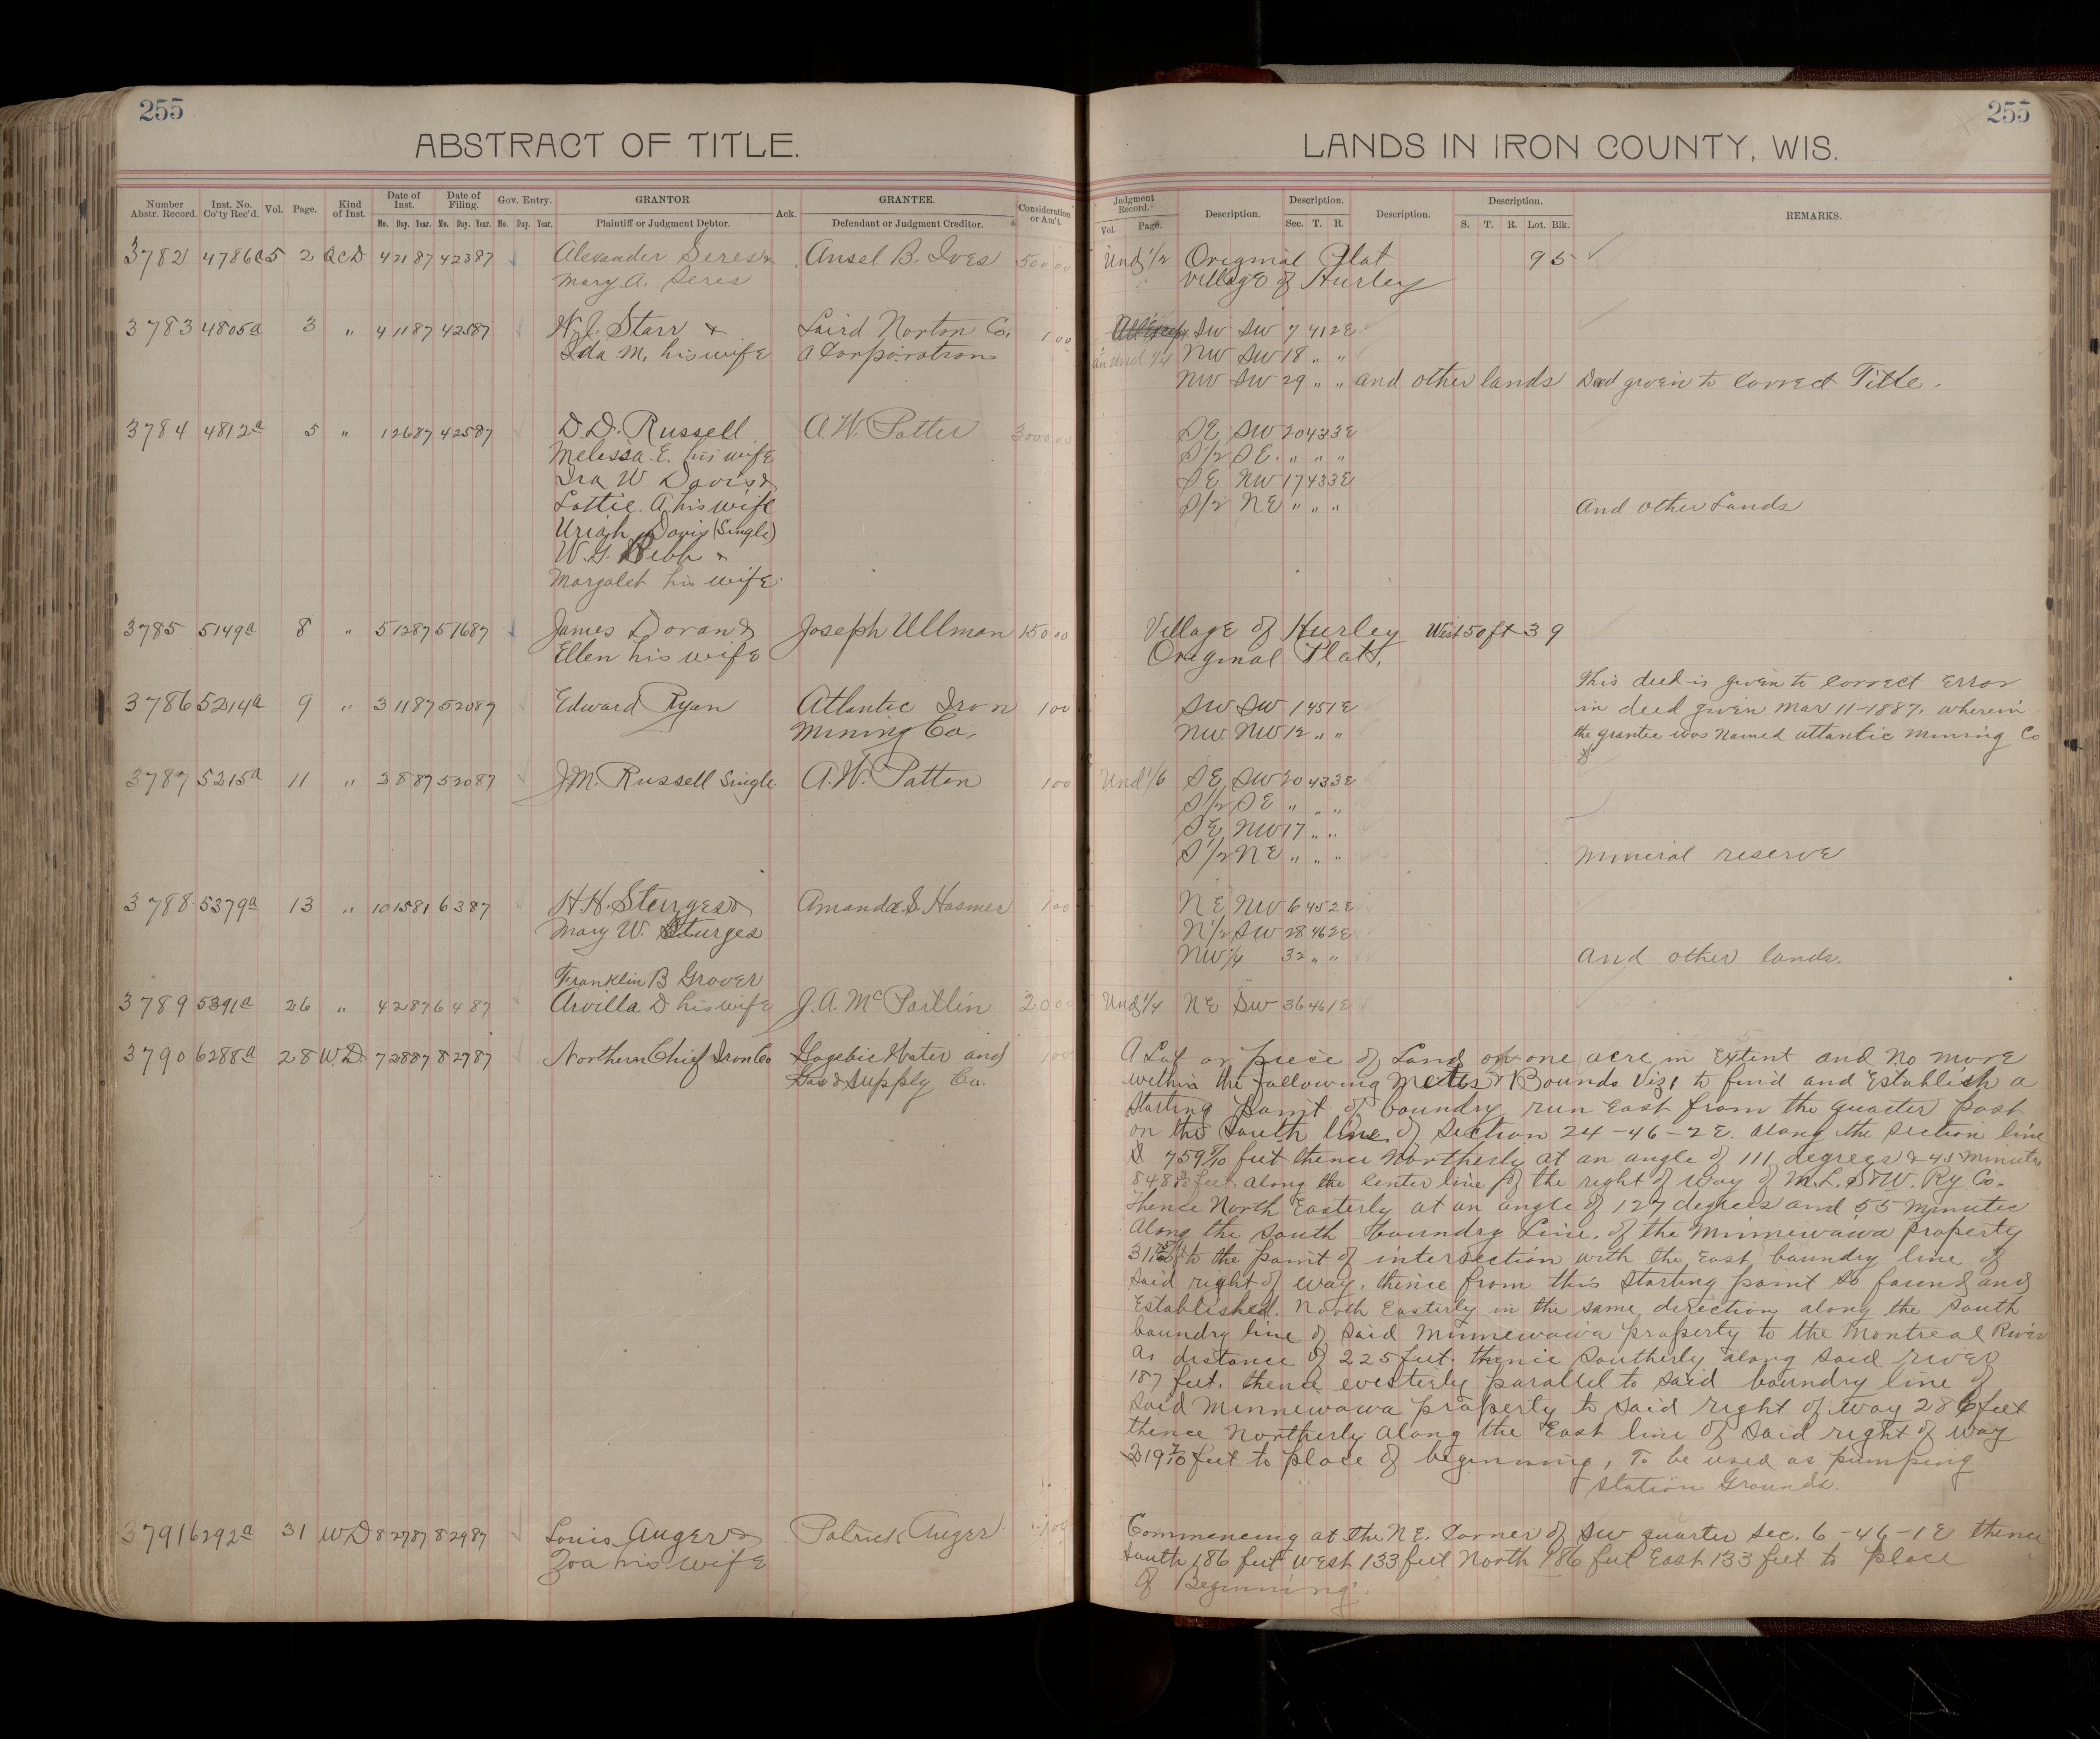 255
255
ABSTRACT OF TITLE.
LANDS IN IRON COUNTY, WIS.
Number Abstr. Record. Inst. No. Co'ty Rec'd. Vol. Page. Kind of Inst. Date of Inst. Mo. Day. Year. Date of Filing. Mo. Day. Year. Gov. Entry. Mo. Day. Year. GRANTOR Plaintiff or Judgment Debtor. Ack. GRANTEE. Defendant or Judgment Creditor. Consideration or Am't.
Judgment Record. Vol. Page. Description. Description. Sec. T. R. Description. Description. S. T. R. Lot. Blk. REMARKS.
3782 4786a 5 2 QCD 4 21 87 4 23 87 Alexander Seres & Ansel B. Ives 500 00 Und 1/2 Original Plat 9 5
Mary A. Seres Village of Hurley
3783 4805a 3 " 4 11 87 4 25 87 W.J. Starr & Laird Norton Co. 1 00 SW SW 7 41 2E
Ida M. his wife a Corporation NW SW 18 " "
NW SW 29 " " and other lands Deed given to correct Title.
3784 4812a 5 " 1 26 87 4 25 87 D.D. Russell A.W. Patten 3000 00 SE SW 20 43 3E
Melessa E. his wife S1/2 SE. " " "
Ira W Davis & SE NW 17 43 3E
Lottie A. his wife S1/2 NE " " " And other Lands
Uriah Davis (Single)
W.G. Webb &
Margaret his wife
3785 5149a 8 " 5 12 87 5 16 87 James Doran & Joseph Ullman 150 00 Village of Hurley West 50 ft 3 9
Ellen his wife Original Platt.
3786 5214a 9 " 3 11 87 5 20 87 Edward Ryan Atlantic Iron 1 00 SW SW 1 45 1E
Mining Co. NW NW 12 " "
This deed is given to correct Error
in deed given Mar 11-1887. wherein
the grantee was named atlantic mining Co
3787 5215a 11 " 3 8 87 5 20 87 J.M. Russell Single A.W. Patten 1 00 Und 1/6 SE SW 20 43 3E
S1/2 SE " " "
SE NW 17 " "
S1/2 NE " " " Mineral reserve
3788 5379a 13 " 10 15 81 6 3 87 H.H. Sturges & Amanda S. Hosmer 1 00 NE NW 6 45 2E
Mary W. Sturges N1/2 SW 28 46 2E
NW 1/4 32 " " And other lands.
Franklin B Grover
3789 5391a 26 " 4 28 87 6 4 87 Arvilla D his wife J.A. McPartlin Und 1/4 NE SW 36 46 1E
3790 6288a 28 W.D. 7 28 87 8 27 87 Northern Chief Iron Co Gogebic Water and 1 00
Gas & Supply Co.
A Lot or piece of Land of one acre in Extent and no more
within the following Metes & Bounds Viz: to find and Establish a
starting point of boundry run East from the quarter post
on the South line of Section 24-46-2E. along the section line
759 feet thence Northerly at an angle of 111 degrees & 45 minutes
848 feet along the center line of the right of way of M.L.S&W. Ry Co.
Thence North Easterly at an angle of 127 degrees and 55 minutes
along the south boundry Line. of the Minnewawa property
to the point of intersection with the East boundry line of
said right of way. thence from this starting point so found and
Established. North Easterly in the same direction along the south
boundry line of said Minnewawa property to the Montreal River
a distance of 225 feet. thence Southerly along said river
187 feet. thence westerly parallel to said boundry line of
said Minnewawa property to said right of way 286 feet
thence Northerly along the East line of said right of way
feet to place of beginning, To be used as pumping
station Grounds.
3791 6292a 31 WD 8 27 87 8 29 87 Louis Auger & Patrick Auger Commencing at the N.E. Corner of SW quarter Sec. 6-46-1E thence
Zoa his wife South 186 feet West 133 feet North 186 feet East 133 feet to place
of Beginning.